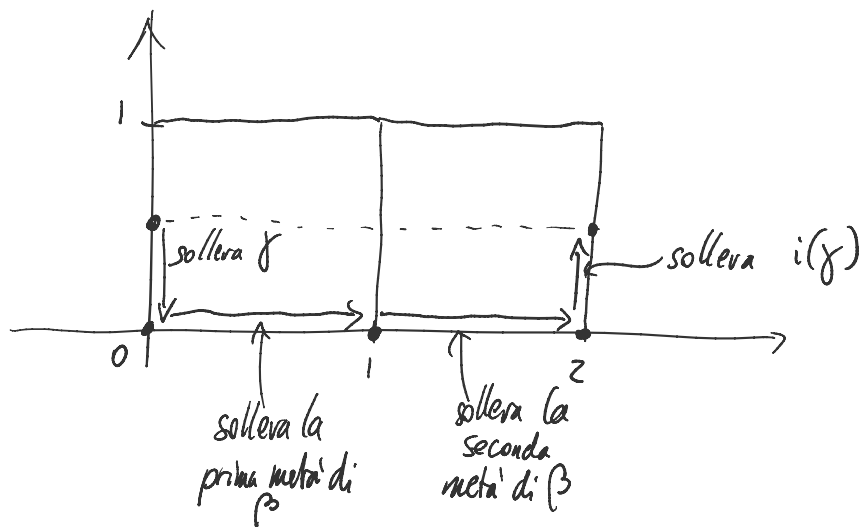 1
sollera γ
sollera i(γ)
0
1
2
sollera la
prima metà di
β
sollera la
seconda
metà di β